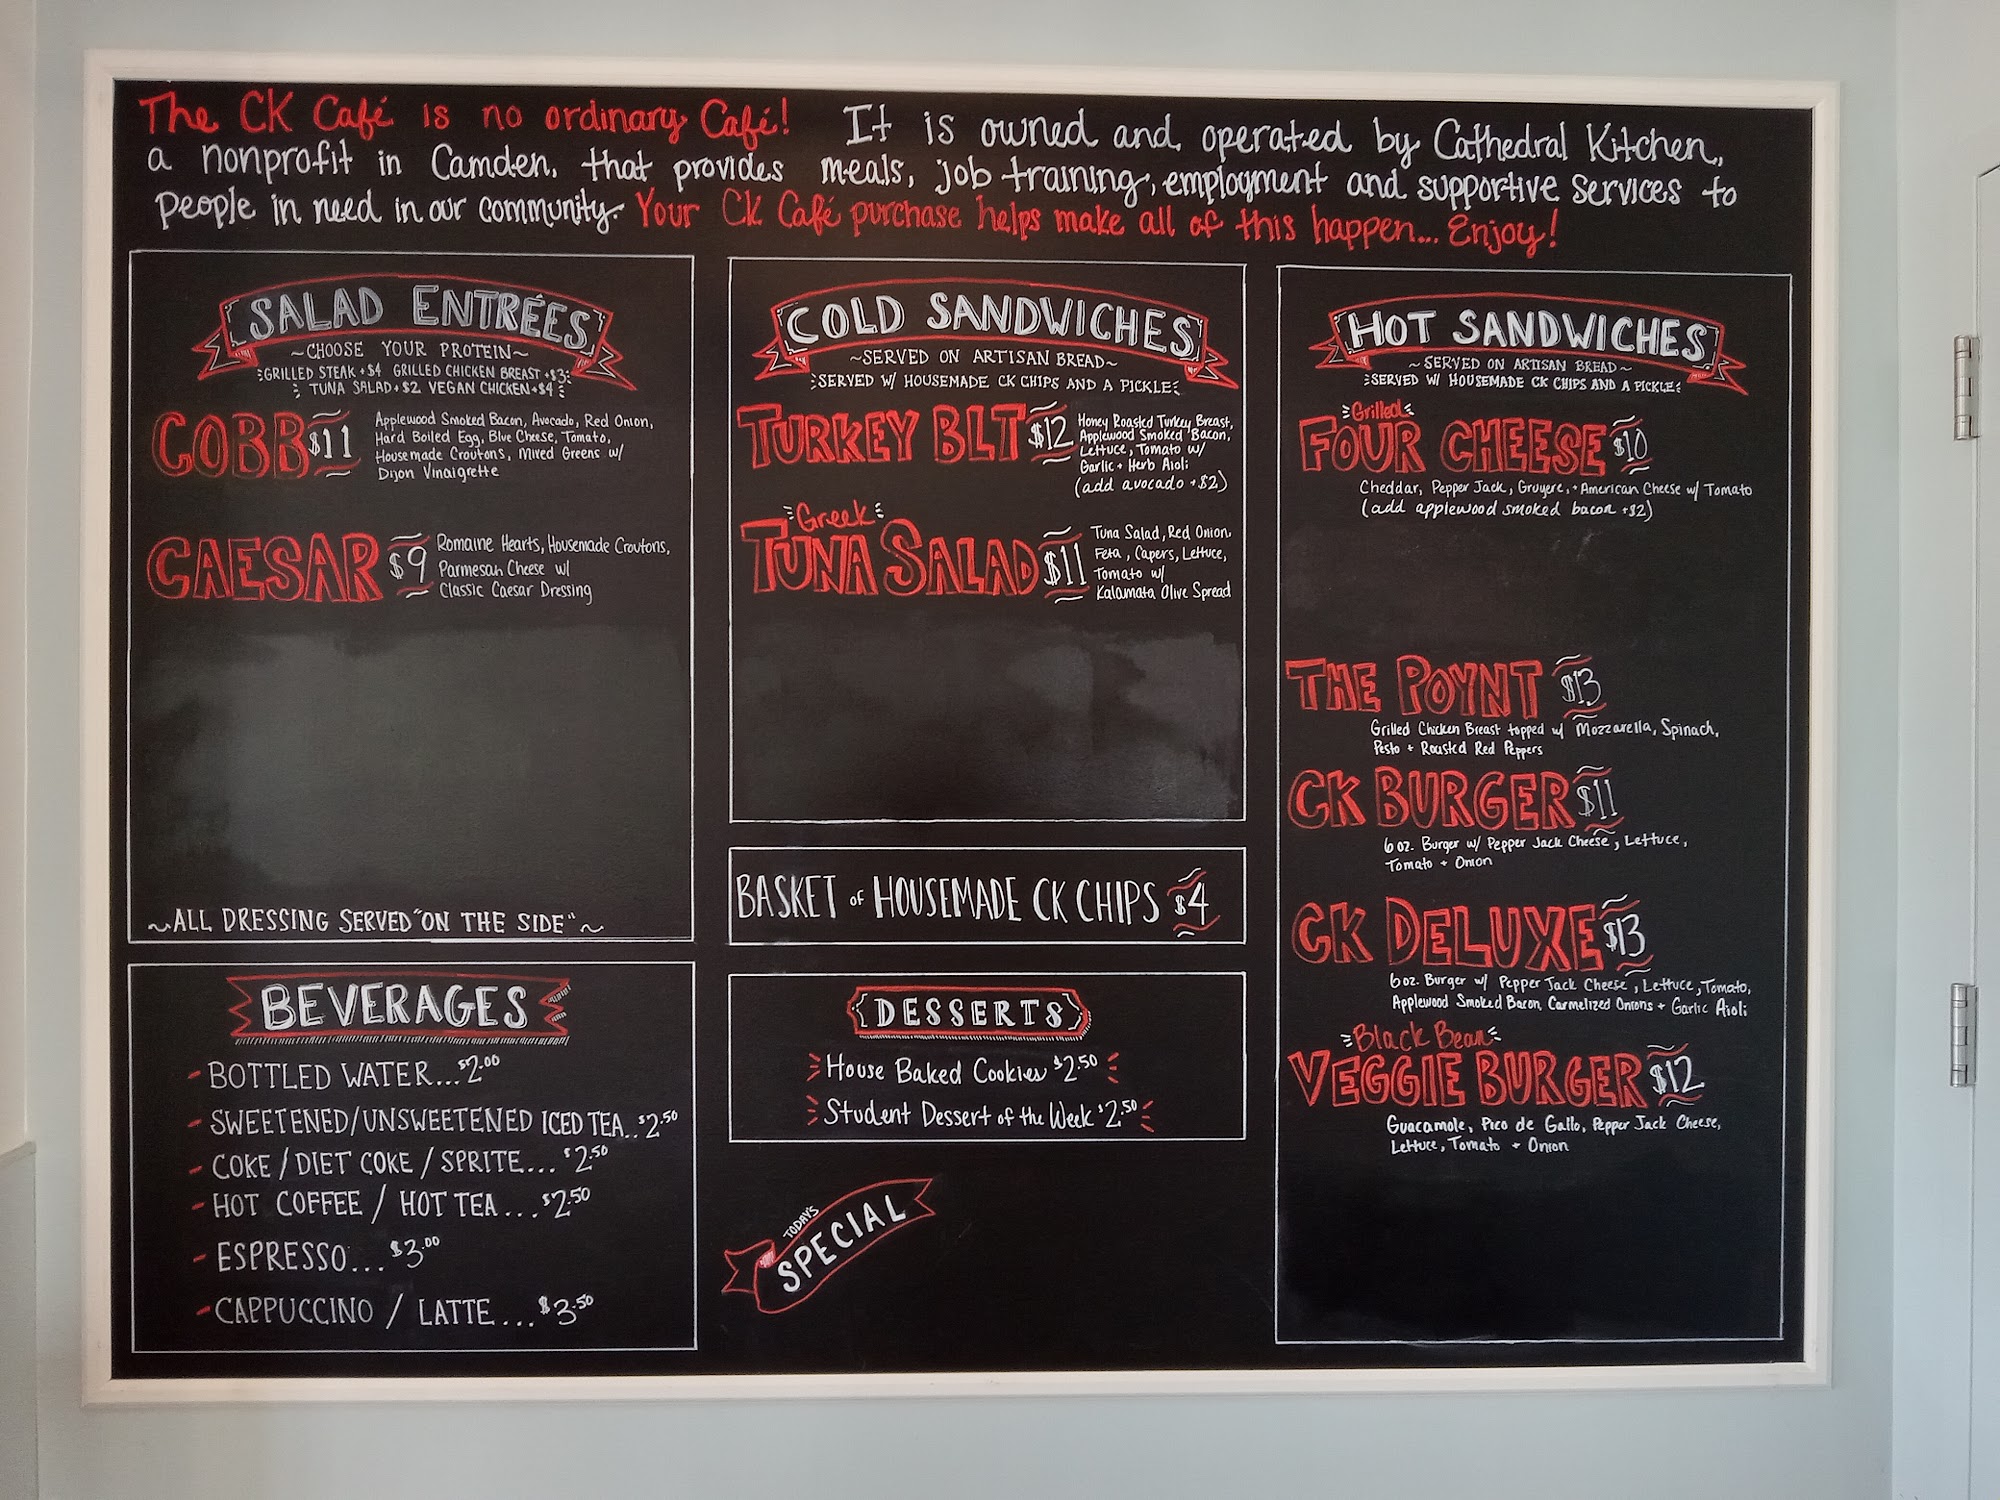 The CK Café is no ordinary Café! It is owned and operated by Cathedral Kitchen,
a nonprofit in Camden, that provides meals, job training, employment and supportive services to
people in need in our community. Your CK Café purchase helps make all of this happen... Enjoy!
SALAD ENTRÉES
~CHOOSE YOUR PROTEIN~
GRILLED STEAK +$4 GRILLED CHICKEN BREAST +$3
TUNA SALAD +$2 VEGAN CHICKEN +$4
COBB $11
Applewood Smoked Bacon, Avocado, Red Onion,
Hard Boiled Egg, Blue Cheese, Tomato,
Housemade Croutons, Mixed Greens w/
Dijon Vinaigrette
CAESAR $9
Romaine Hearts, Housemade Croutons,
Parmesan Cheese w/
Classic Caesar Dressing
~ALL DRESSING SERVED "ON THE SIDE"~
BEVERAGES
- BOTTLED WATER...$2.00
- SWEETENED/UNSWEETENED ICED TEA..$2.50
- COKE / DIET COKE / SPRITE...$2.50
- HOT COFFEE / HOT TEA...$2.50
- ESPRESSO...$3.00
- CAPPUCCINO / LATTE...$3.50
COLD SANDWICHES
~SERVED ON ARTISAN BREAD~
SERVED W/ HOUSEMADE CK CHIPS AND A PICKLE
TURKEY BLT $12
Honey Roasted Turkey Breast,
Applewood Smoked Bacon,
Lettuce, Tomato w/
Garlic + Herb Aioli
(add avocado +$2)
Greek
TUNA SALAD $11
Tuna Salad, Red Onion,
Feta, Capers, Lettuce,
Tomato w/
Kalamata Olive Spread
BASKET of HOUSEMADE CK CHIPS $4
DESSERTS
House Baked Cookies $2.50
Student Dessert of the Week $2.50
TODAY'S
SPECIAL
HOT SANDWICHES
~SERVED ON ARTISAN BREAD~
SERVED W/ HOUSEMADE CK CHIPS AND A PICKLE
Grilled
FOUR CHEESE $10
Cheddar, Pepper Jack, Gruyere, + American Cheese w/ Tomato
(add applewood smoked bacon +$2)
THE POYNT $13
Grilled Chicken Breast topped w/ Mozzarella, Spinach,
Pesto + Roasted Red Peppers
CK BURGER $11
6 oz. Burger w/ Pepper Jack Cheese, Lettuce,
Tomato + Onion
CK DELUXE $13
6 oz. Burger w/ Pepper Jack Cheese, Lettuce, Tomato,
Applewood Smoked Bacon, Carmelized Onions + Garlic Aioli
Black Bean
VEGGIE BURGER $12
Guacamole, Pico de Gallo, Pepper Jack Cheese,
Lettuce, Tomato + Onion